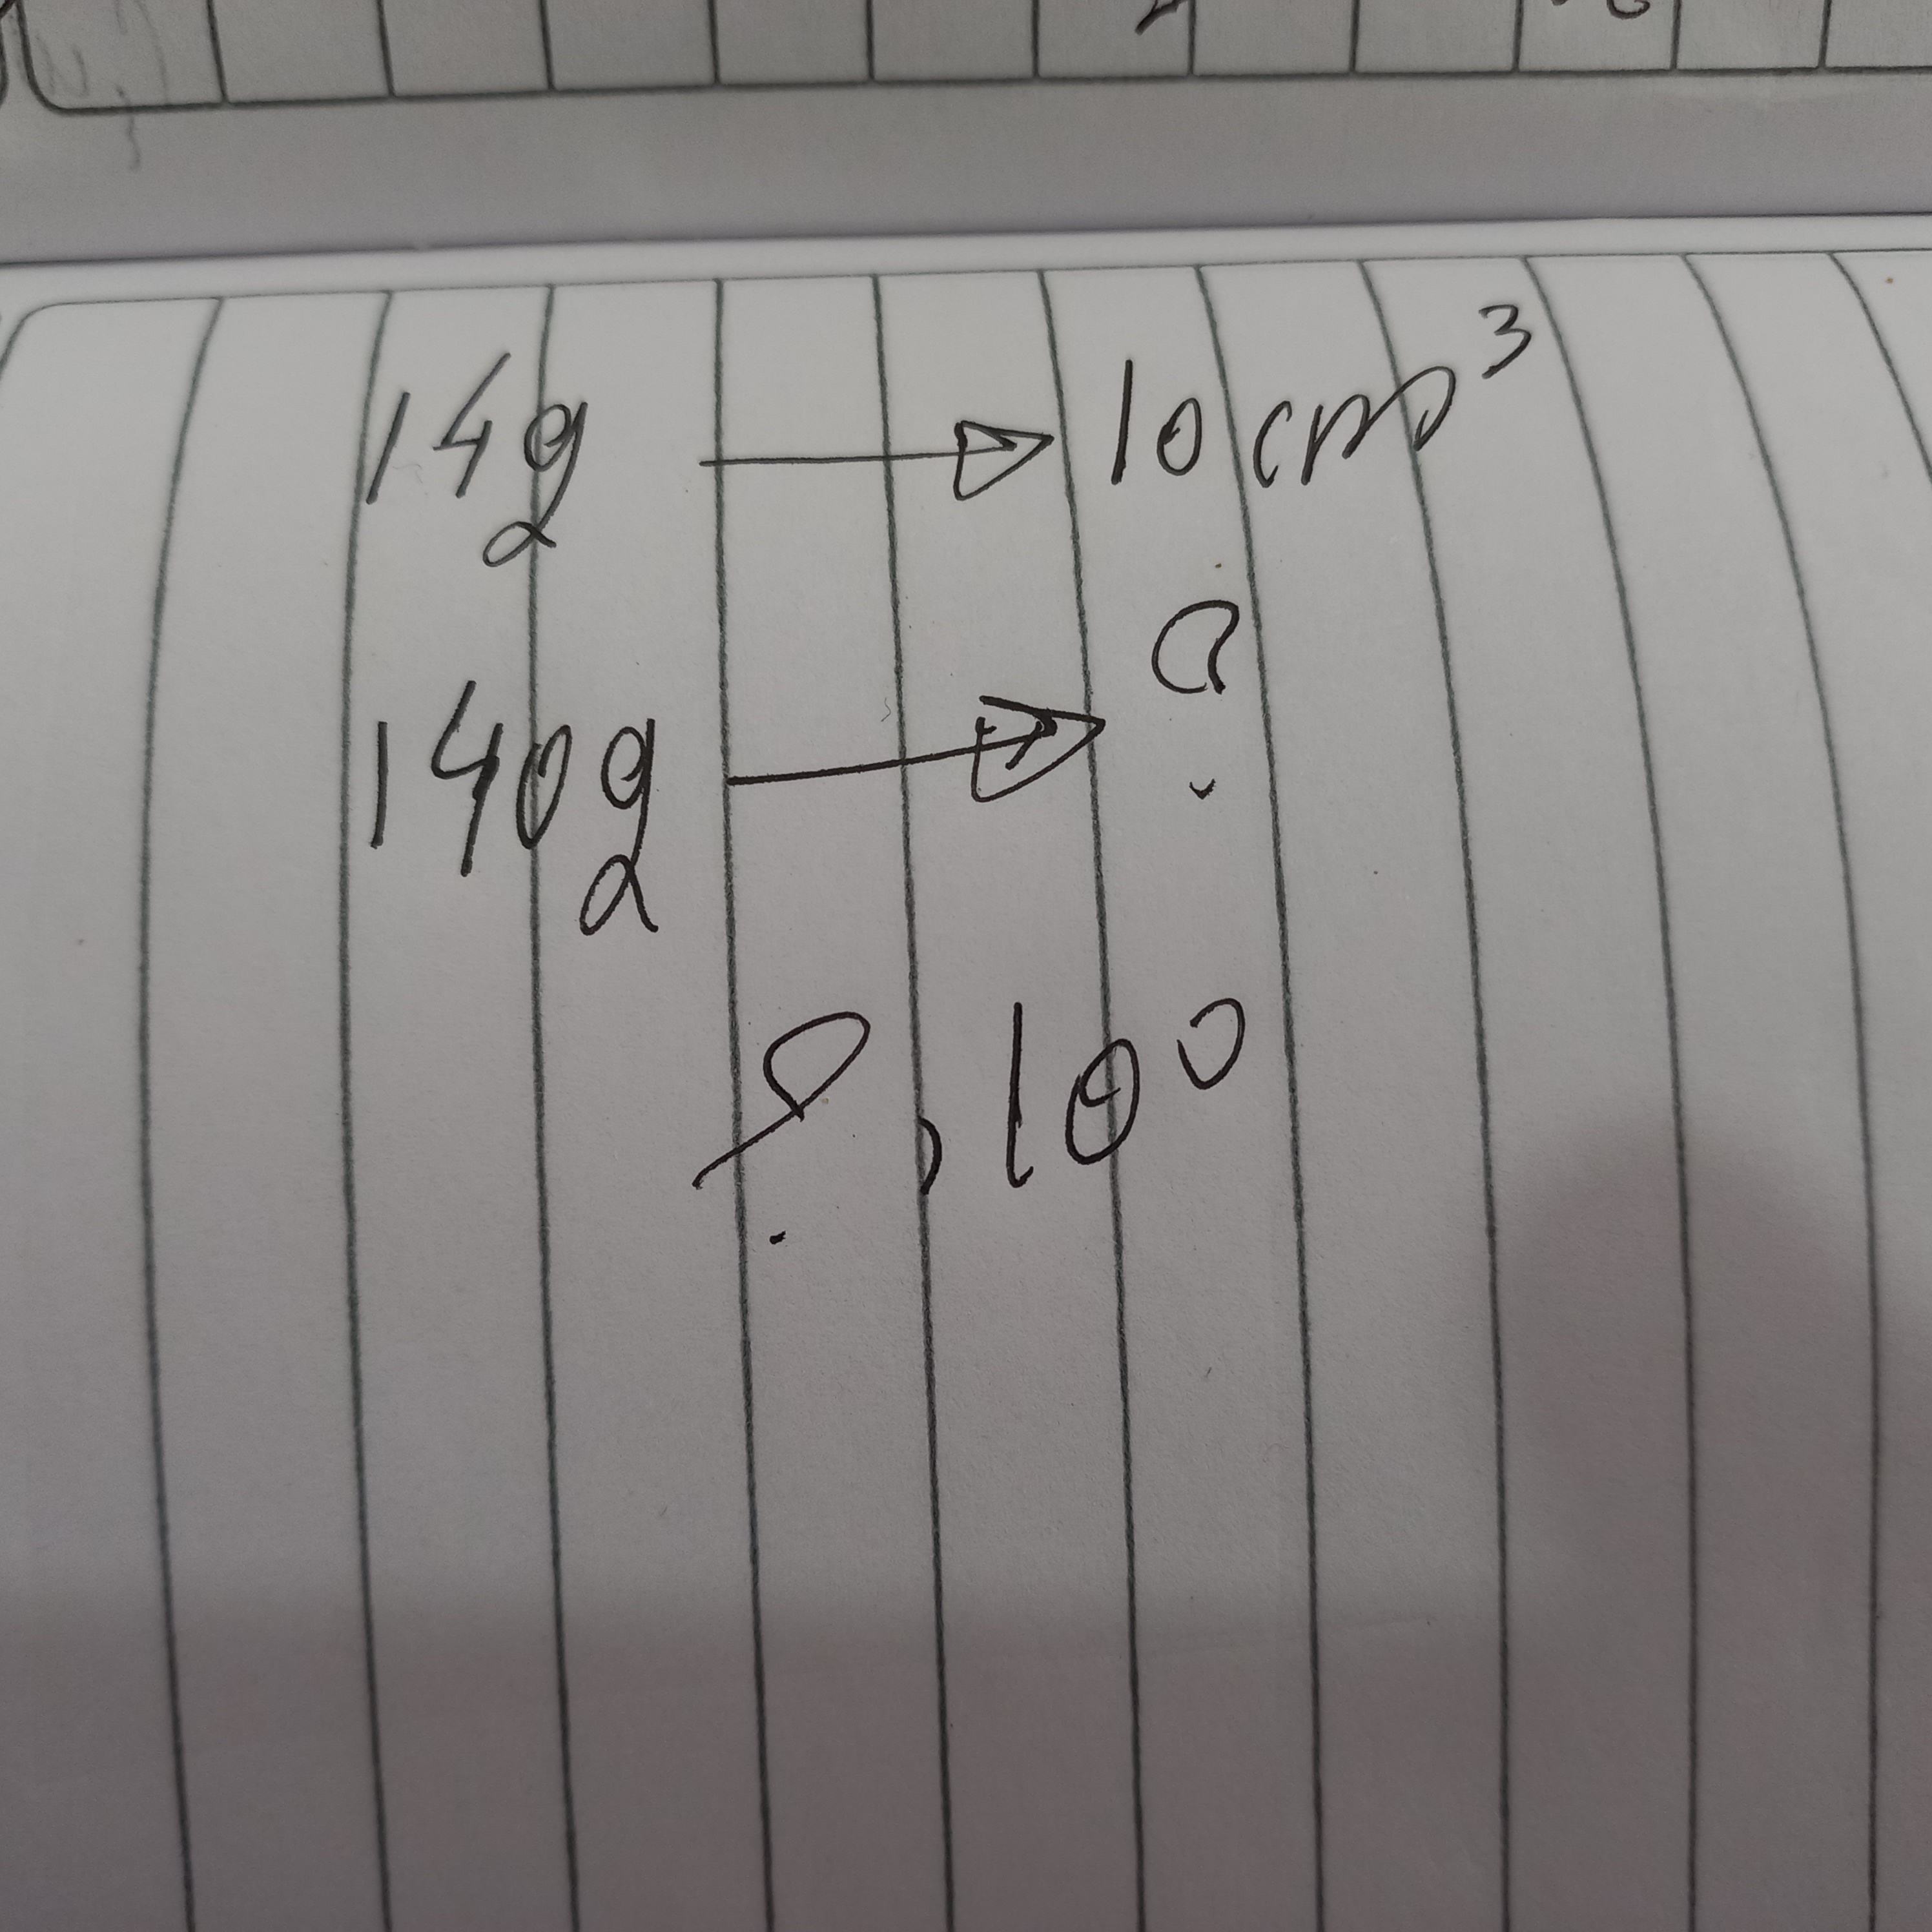 14g → 10cm³
140g → ?
?, 100